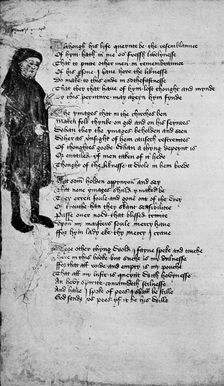 Although his life queynt be the resemblaunce
Of hym hath in me so fressh lyvelynesse
That to putte other men in remembraunce
Of his persone I have here the liknesse
Do make to this ende in sothfastnesse
That they that have of hym lost thought and mynde
By this peynture may ageyn hym fynde
The ymages that in the churches ben
Maken folk thynke on god and on his seyntes
Whan they the ymages beholden and seen
Where as unsight of hem causeth restreyntes
Of thoughtes goode whan a thyng depeynt is
Or entailed yf men taken of it hede
Thought of the liknesse it wole in hem brede
Yet som holden oppynyon and sey
That none ymages shuld ymaked be
They erren foule and gone out of the wey
Of trouthe han they skant sensibilite
Passe over now that blessed trinite
Upon my maistres soule mercy have
For hym lady eke thy mercy I crave
More other thyng wold I fayne speke and touche
Here in this booke but suche is my dulnesse
For that al voide and empty is my pouche
That all my luste is queynt with hevynesse
An hevy spirite comaundeth stilnesse
And have I spoke of pees I shal be stille
God sende us pees yf it be his wille